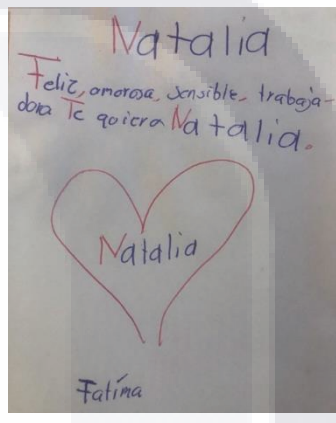 Natalia
Feliz, amorosa, sensible, trabaja-
dora Te quiero Natalia.
Natalia
Fatíma